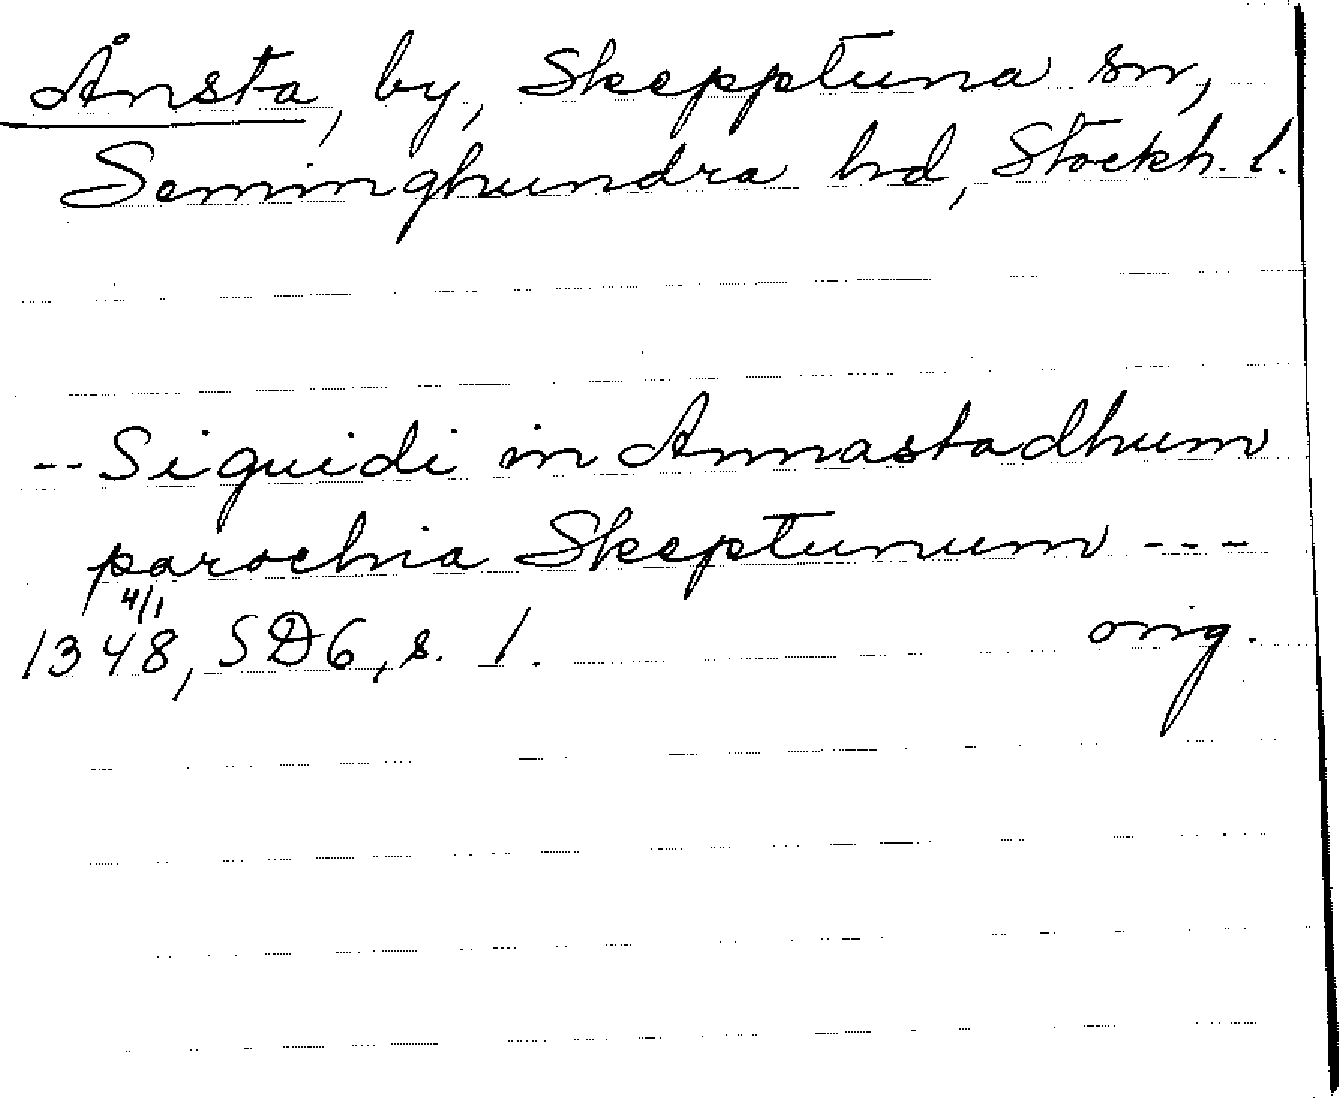 Ånsta, by, Skepptuna sn,
Seminghundra hd, Stockh. l.
-- Siguidi in Annastadhum
parochia Skeptunum ---
4/1
1348, SD6, s. 1. orig.